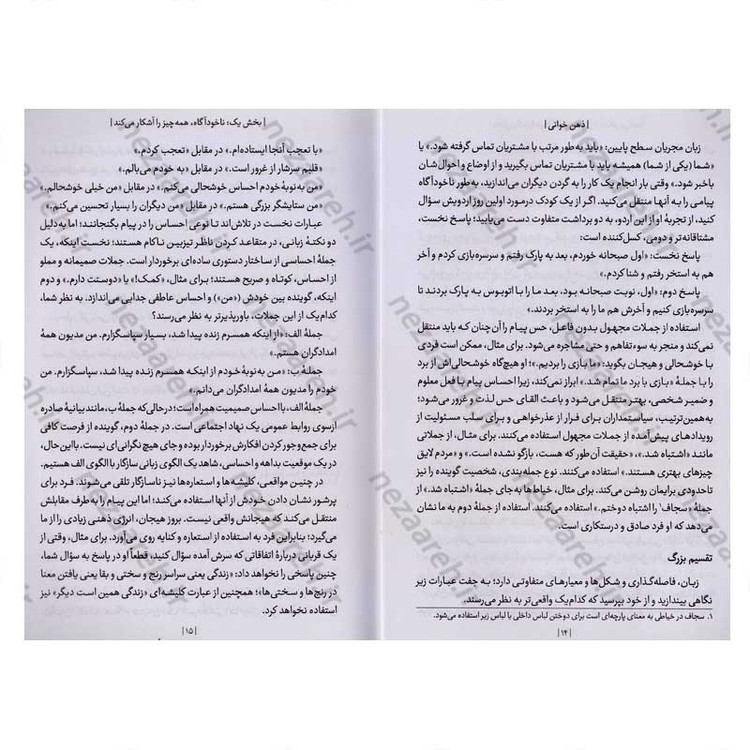 | ذهن خوانی |
زبان مجریان سطح پایین: «باید به‌طور مرتب با مشتریان تماس گرفته شود.» یا
«شما (یکی از شما) همیشه باید با مشتریان تماس بگیرید و از اوضاع و احوال‌شان
باخبر شود.» وقتی بار انجام یک کار را به گردن دیگران می‌اندازید، به‌طور ناخودآگاه
پیامی را به آنها منتقل می‌کنید، اگر از یک کودک درمورد اولین روز اردویش سؤال
کنید، از تجربهٔ او از این اردو، به دو برداشت متفاوت دست می‌یابید؛ پاسخ نخست،
مشتاقانه‌تر و دومی، کسل‌کننده است:
پاسخ نخست: «اول صبحانه خوردم، بعد به پارک رفتم و سرسره‌بازی کردم و آخر
هم به استخر رفتم و شنا کردم.»
پاسخ دوم: «اول، نوبت صبحانه بود. بعد ما را با اتوبوس به پارک بردند تا
سرسره‌بازی کنیم و آخرش هم ما را به استخر بردند.»
استفاده از جملات مجهول بدون فاعل، حس پیام را آن‌چنان که باید منتقل
نمی‌کند و منجر به سوءتفاهم و حتی مشاجره می‌شود. برای مثال، ممکن است فردی
با خوشحالی و هیجان بگوید: «ما بازی را بردیم.» او هیچ‌گاه خوشحالی‌اش از برد
را با جملهٔ «بازی با برد ما تمام شد.» ابراز نمی‌کند، زیرا احساس پیام با فعل معلوم
و ضمیر شخصی، بهتر منتقل می‌شود و باعث القای حس لذت و غرور می‌شود؛
به همین‌ترتیب، سیاستمداران برای فرار از عذرخواهی و برای سلب مسئولیت از
رویدادهای پیش‌آمده از جملات مجهول استفاده می‌کنند. برای مثال، از جملاتی
مانند «اشتباه شد.»، «حقیقت آن‌طور که هست، بازگو نشده است.» و «مردم لایق
چیزهای بهتری هستند.» استفاده می‌کنند. نوع جمله‌بندی، شخصیت گوینده را نیز
تاحدودی برایمان روشن می‌کند. برای مثال، خیاط‌ها به‌جای جملهٔ «اشتباه شد.» از
جملهٔ «سجاف¹ را اشتباه دوختم.» استفاده می‌کنند. استفاده از جملهٔ دوم به ما نشان
می‌دهد که او فرد صادق و درستکاری است.
تقسیم بزرگ
زبان، فاصله‌گذاری و شکل‌ها و معیارهای متفاوتی دارد؛ به جفت عبارات زیر
نگاهی بیندازید و از خود بپرسید که کدام‌یک واقعی‌تر به نظر می‌رسند.
۱. سجاف در خیاطی به معنای پارچه‌ای است برای دوختن لباس داخلی یا لباس زیر استفاده می‌شود.
| ۱۴ |
| بخش یک: ناخودآگاه، همه‌چیز را آشکار می‌کند |
«با تعجب آنجا ایستاده‌ام.» در مقابل «تعجب کردم.»
«قلبم سرشار از غرور است.» در مقابل «به خودم می‌بالم.»
«من به نوبهٔ خودم احساس خوشحالی می‌کنم.» در مقابل «من خیلی خوشحالم.»
«من ستایشگر بزرگی هستم.» در مقابل «من دیگران را بسیار تحسین می‌کنم.»
عبارات نخست در تلاش‌اند تا نوعی احساس را در پیام بگنجانند؛ اما به دلیل
دو نکتهٔ زبانی، در متقاعد کردن ناظر تیزبین ناکام هستند؛ نخست اینکه، یک
جملهٔ احساسی از ساختار دستوری ساده‌ای برخوردار است. جملات صمیمانه و مملو
از احساس، کوتاه و صریح هستند؛ برای مثال، «کمک!» یا «دوستت دارم.» و دوم
اینکه، گوینده بین خودش («من») و احساس عاطفی جدایی می‌اندازد. به نظر شما،
کدام‌یک از این جملات، باورپذیرتر به نظر می‌رسند؟
جملهٔ الف: «از اینکه همسرم زنده پیدا شد، بسیار سپاسگزارم. من مدیون همهٔ
امدادگران هستم.»
جملهٔ ب: «من به نوبهٔ خودم از اینکه همسرم زنده پیدا شد، سپاسگزارم. من
خودم را مدیون همهٔ امدادگران می‌دانم.»
جملهٔ الف، با احساس صمیمیت همراه است؛ درحالی‌که جملهٔ ب، مانند بیانیهٔ صادره
ازسوی روابط عمومی یک نهاد اجتماعی است. در جملهٔ دوم، گوینده از فرصت کافی
برای جمع‌وجور کردن افکارش برخوردار بوده و جای هیچ نگرانی‌ای نیست. بااین‌حال،
در یک موقعیت بداهه و احساسی، شاهد یک الگوی زبانی سازگار با الگوی الف هستیم.
در چنین مواقعی، کلیشه‌ها و استعاره‌ها نیز ناسازگار تلقی می‌شوند. فرد برای
پرشور نشان دادن خودش از آنها استفاده می‌کند؛ اما این پیام را به طرف مقابلش
منتقل می‌کند که هیجانش واقعی نیست. بروز هیجان، انرژی ذهنی زیادی را از ما
می‌گیرد؛ بنابراین فرد به استفاده از استعاره و کنایه روی می‌آورد. برای مثال، وقتی از
یک قربانی دربارهٔ اتفاقاتی که سرش آمده سؤال کنید، قطعاً او در پاسخ به سؤال شما،
چنین پاسخی را نخواهد داد: «زندگی یعنی سراسر رنج و سختی و بقا یعنی یافتن معنا
در رنج‌ها و سختی‌ها»؛ همچنین از عبارت کلیشه‌ای «زندگی همین است دیگر» نیز
استفاده نخواهد کرد.
| ۱۵ |
nezaareh.ir